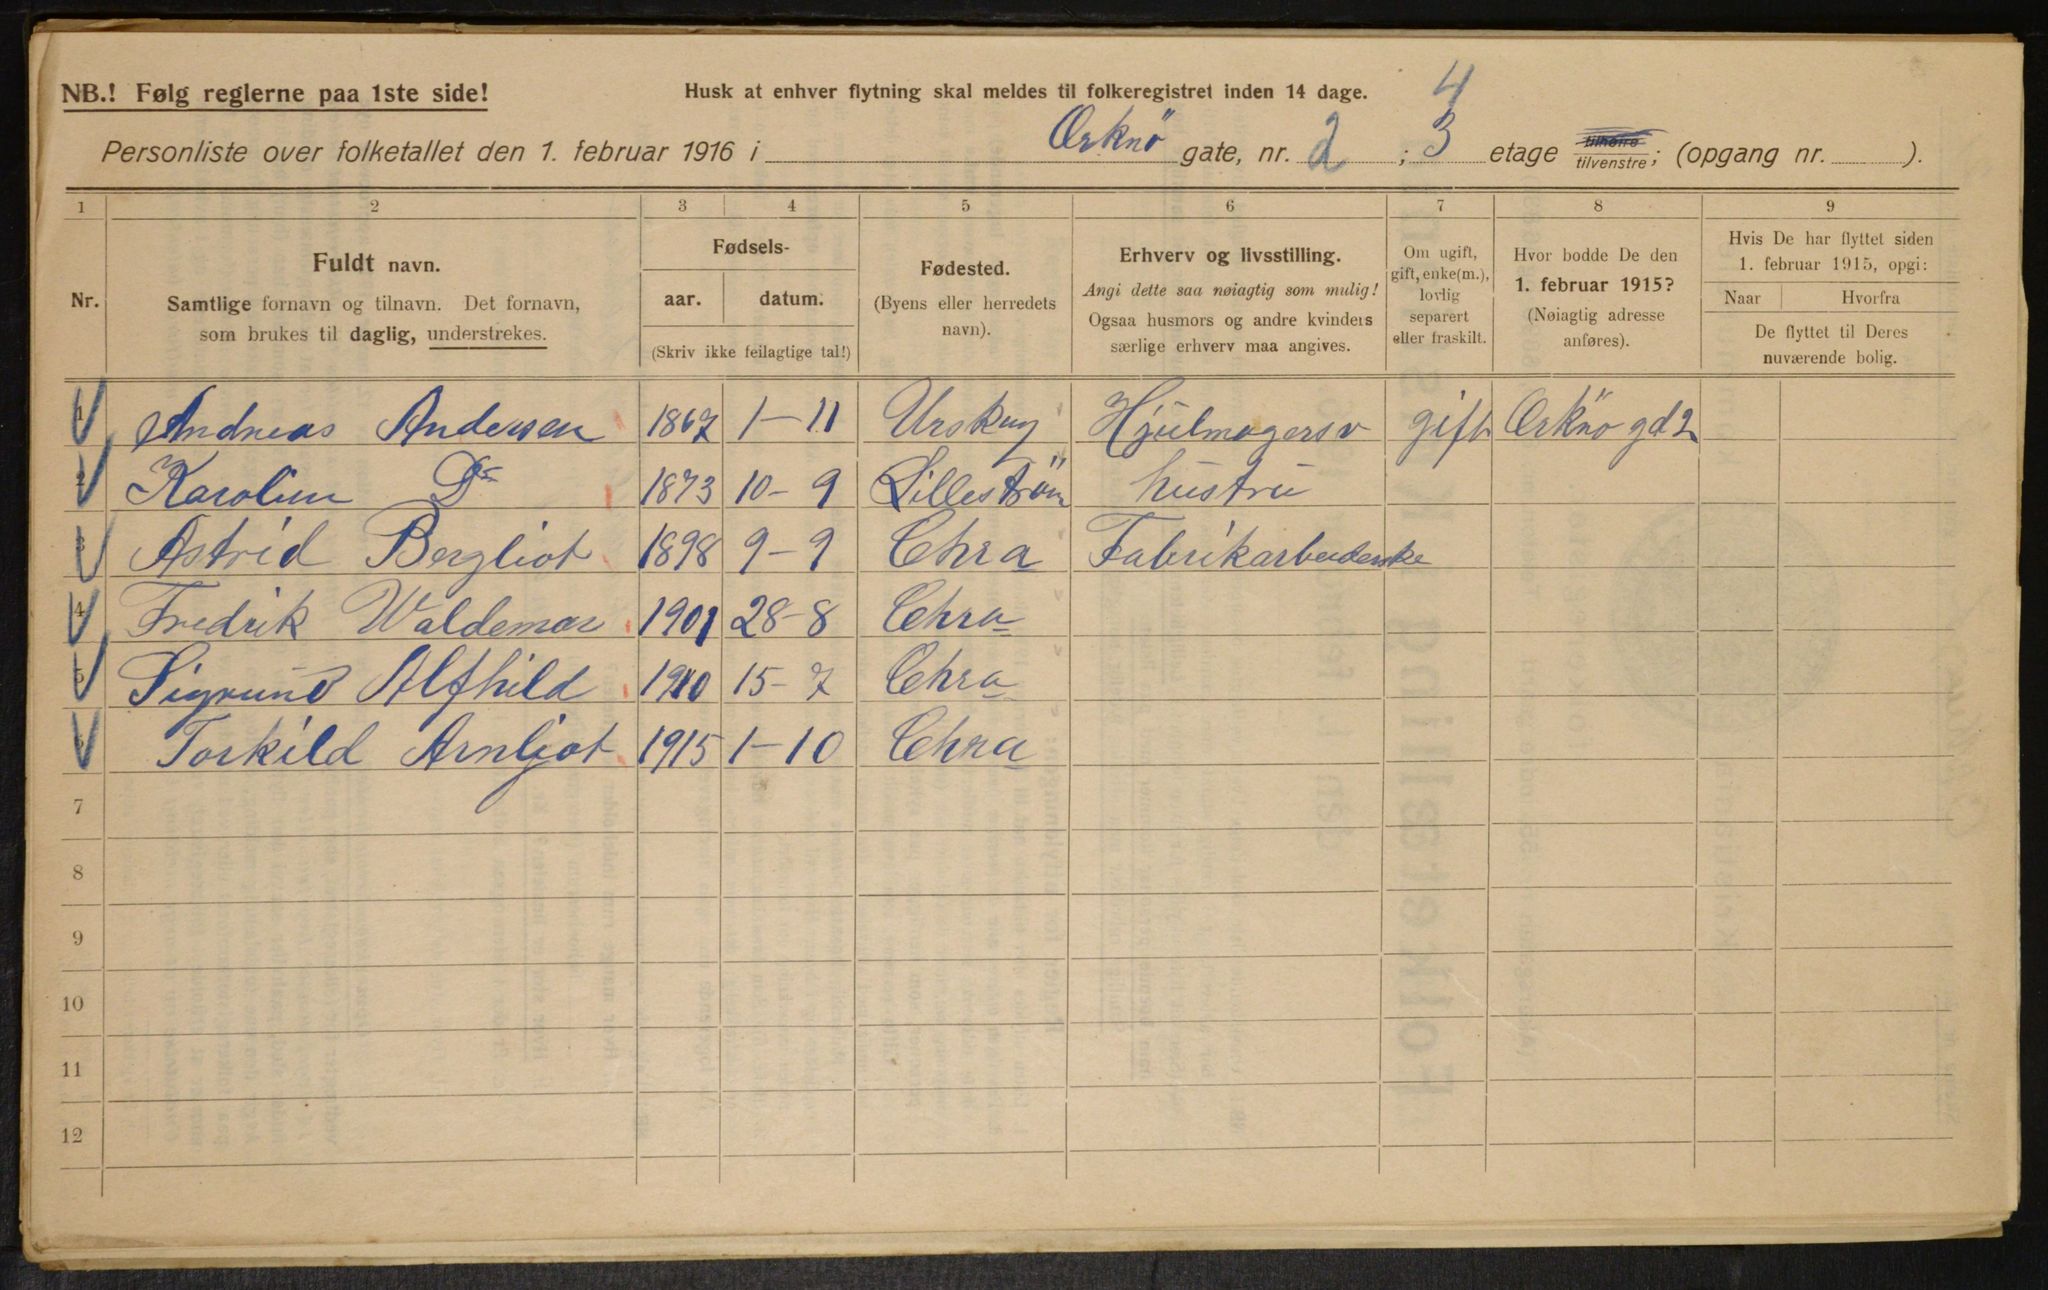 NB.! Følg reglerne paa 1ste side!
Husk at enhver flytning skal meldes til folkeregistret inden 14 dage.
4
Personliste over folketallet den 1. februar 1916 i Orknö gate, nr. 2 ; 3 etage tilhøire tilvenstre; (opgang nr. ).
1 2 3 4 5 6 7 8 9
Nr.
Fuldt navn.
Samtlige fornavn og tilnavn. Det fornavn,
som brukes til daglig, understrekes.
Fødsels-
aar. datum.
(Skriv ikke feilagtige tal!)
Fødested.
(Byens eller herredets
navn).
Erhverv og livsstilling.
Angi dette saa nøiagtig som mulig!
Ogsaa husmors og andre kvinders
særlige erhverv maa angives.
Om ugift,
gift, enke(m.),
lovlig
separert
eller fraskilt.
Hvor bodde De den
1. februar 1915?
(Nøiagtig adresse
anføres).
Hvis De har flyttet siden
1. februar 1915, opgi:
Naar Hvorfra
De flyttet til Deres
nuværende bolig.
1 Andreas Andersen 1867 1-11 Urskug Hjulmagersv gift Orknö gd 2
2 Karoline Do 1873 10-9 Lilleström hustru
3 Astrid Bergliot 1898 9-9 Chra Fabrikarbeiderske
4 Fredrik Waldemar 1901 28-8 Chra
5 Sigrund Alfhild 1910 15-7 Chra
6 Torkild Arnljot 1915 1-10 Chra
7
8
9
10
11
12